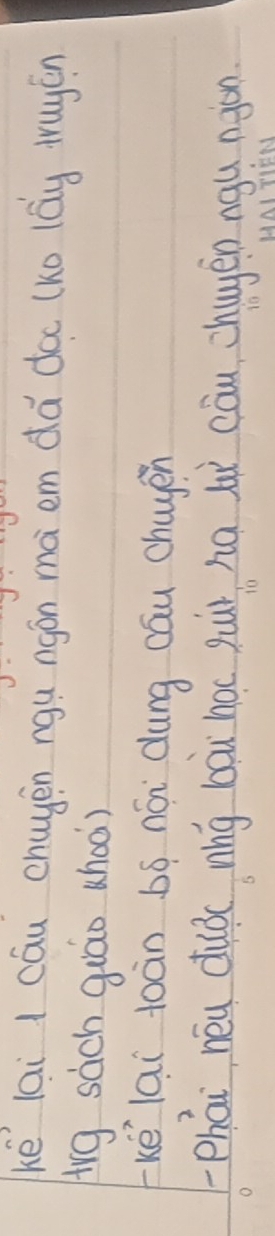 kể lại 1 câu chuyện ngụ ngôn mà em đã đọc (ko lấy truyện
trg sách giáo khoa)
- kể lại toàn bộ nội dung câu chuyện
- Phải nêu được nhg bài học rút ra từ câu chuyện ngụ ngôn.
0 5 10 10
HẢI TIẾN